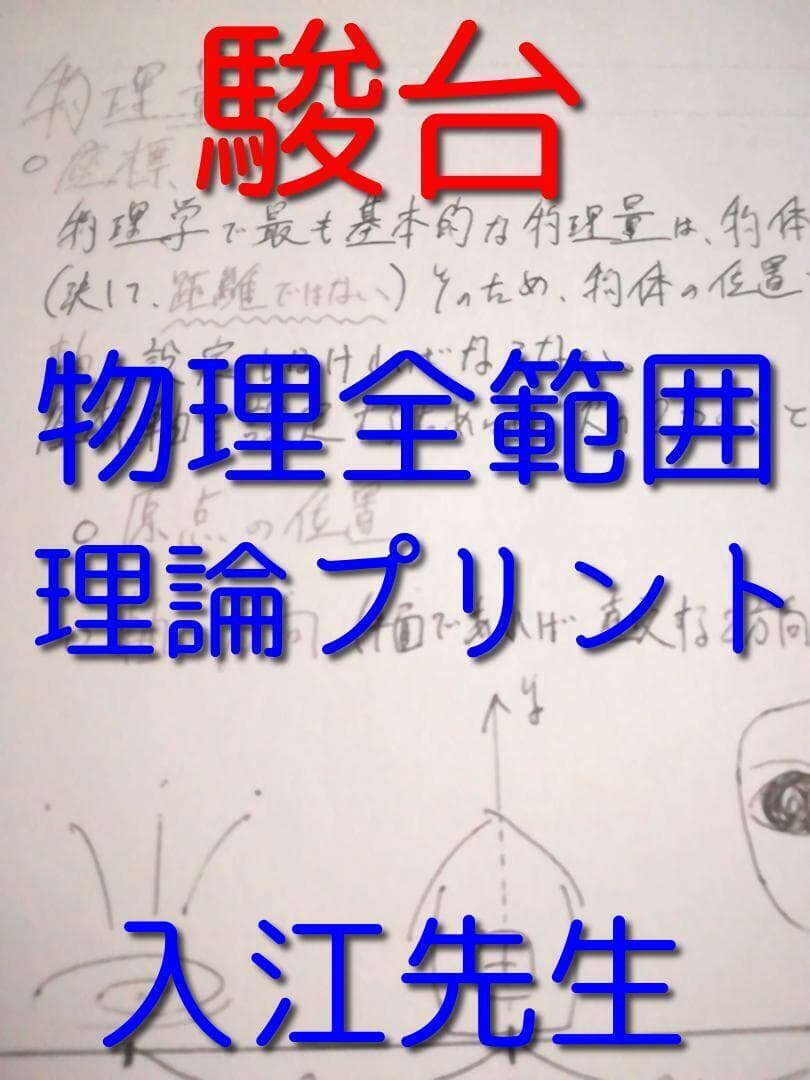 駿台
物理
○座標
物理学で最も基本的な物理量は、物体
(決して、距離ではない)そのため、物体の位置
設定しなければならない。
物理全範囲
○原点の位置
理論プリント
面であれば直交する2方向
y
入江先生